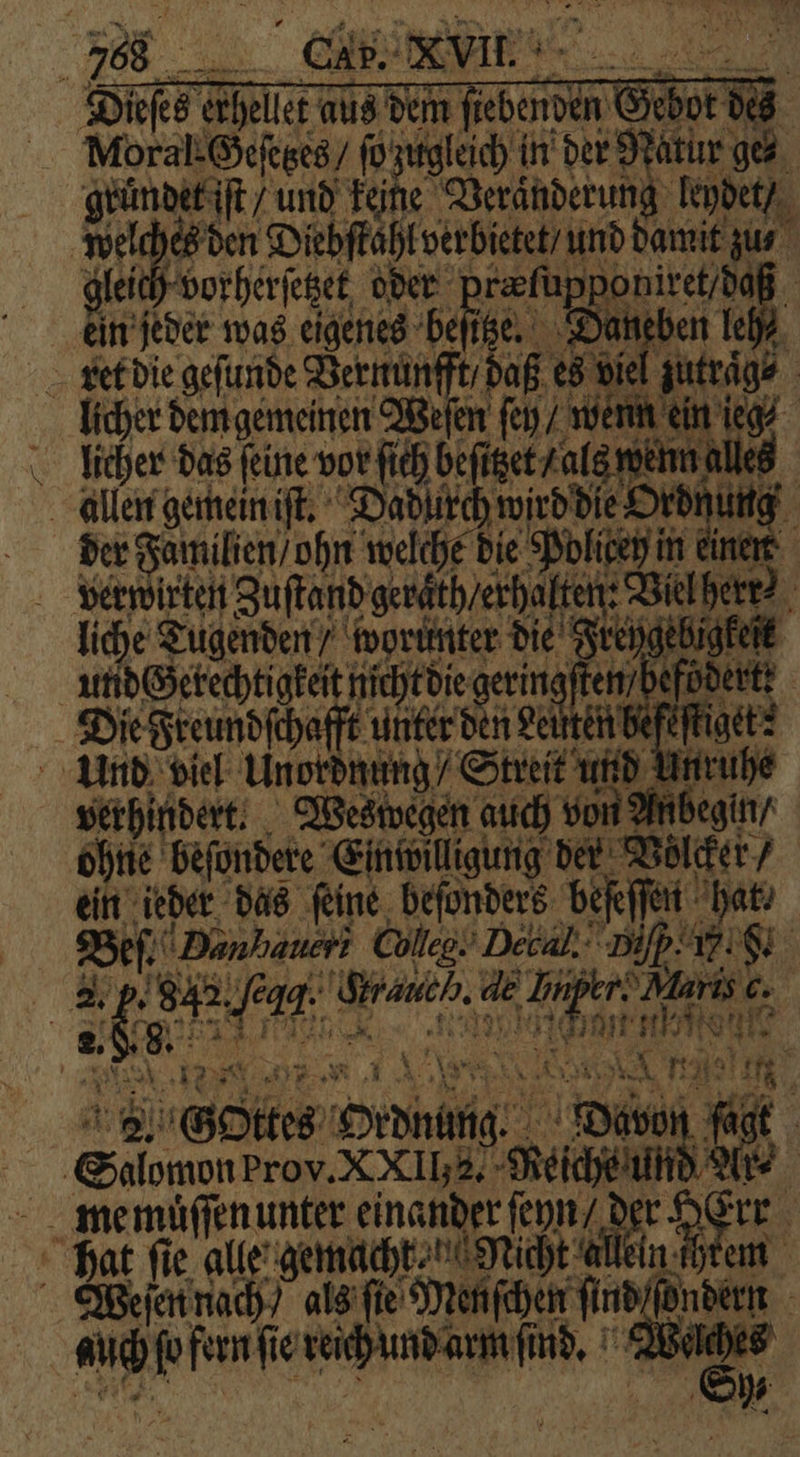 768 CAP. XVII.
Dieſes erhellet aus dem ſiebenden Gebot des
Moral-Geſetzes / ſo zugleich in der Natur ge⸗
gruͤndet iſt / und keine Veraͤnderung leydet /
welches den Diebſtahl verbietet / und damit zu⸗
gleich vorherſetzet oder præſupponiret / daß
ein jeder was eigenes beſitze. Daneben leh⸗
ret die geſunde Vernunfft / daß es viel zutraͤg⸗
licher dem gemeinen Weſen ſey / wenn ein ieg⸗
licher das ſeine vor ſich beſitzet / als wenn alles
allen gemein iſt. Dadurch wird die Ordnung
der Familien / ohn welche die Policey in einen
verwirten Zuſtand geraͤth / erhalten: Viel herr⸗
liche Tugenden / worunter die Freygebigkeit
und Gerechtigkeit nicht die geringſten / befoͤdert:
Die Freundſchafft unter den Leuten befeſtiget:
Und viel Unordnung / Streit und Unruhe
verhindert. Weswegen auch von Anbegin /
ohne beſondere Einwilligung der Voͤlcker /
ein ieder das ſeine beſonders beſeſſen hat.
Beſ. Danhaueri Colleg. Decal. Diſp. 17. §.
2. p. 842. ſeqq. Strauch. de Imper. Maris c.
2. §. 8.
2. GOttes Ordnung. Davon ſagt
Salomon Prov. XXII, 2. Reiche und Ar⸗
me muͤſſen unter einander ſeyn / der HErr
hat ſie alle gemacht. Nicht allein ihrem
Weſen nach / als ſie Menſchen ſind / ſondern
auch ſo fern ſie reich und arm ſind. Welches
Sy⸗